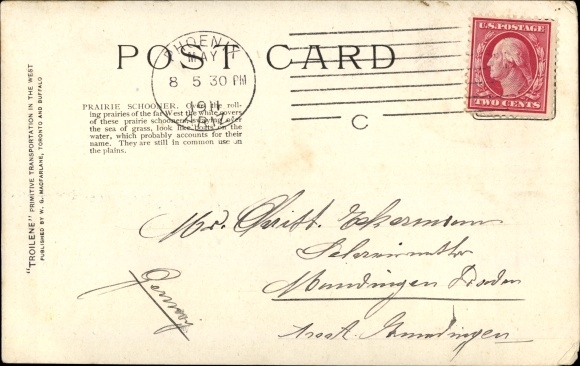 POST CARD
PHOENIX
MAY
8 5 30 PM
U.S. POSTAGE
TWO CENTS
C
PRAIRIE SCHOONER. Over the roll-
ing prairies of the far West the white covers
of these prairie schooners, swaying over
the sea of grass, look like boats on the
water, which probably accounts for their
name. They are still in common use on
the plains.
"TROILENE" PRIMITIVE TRANSPORTATION IN THE WEST
PUBLISHED BY W. G. MACFARLANE, TORONTO AND BUFFALO
Christ.
Mundingen Baden
Germany